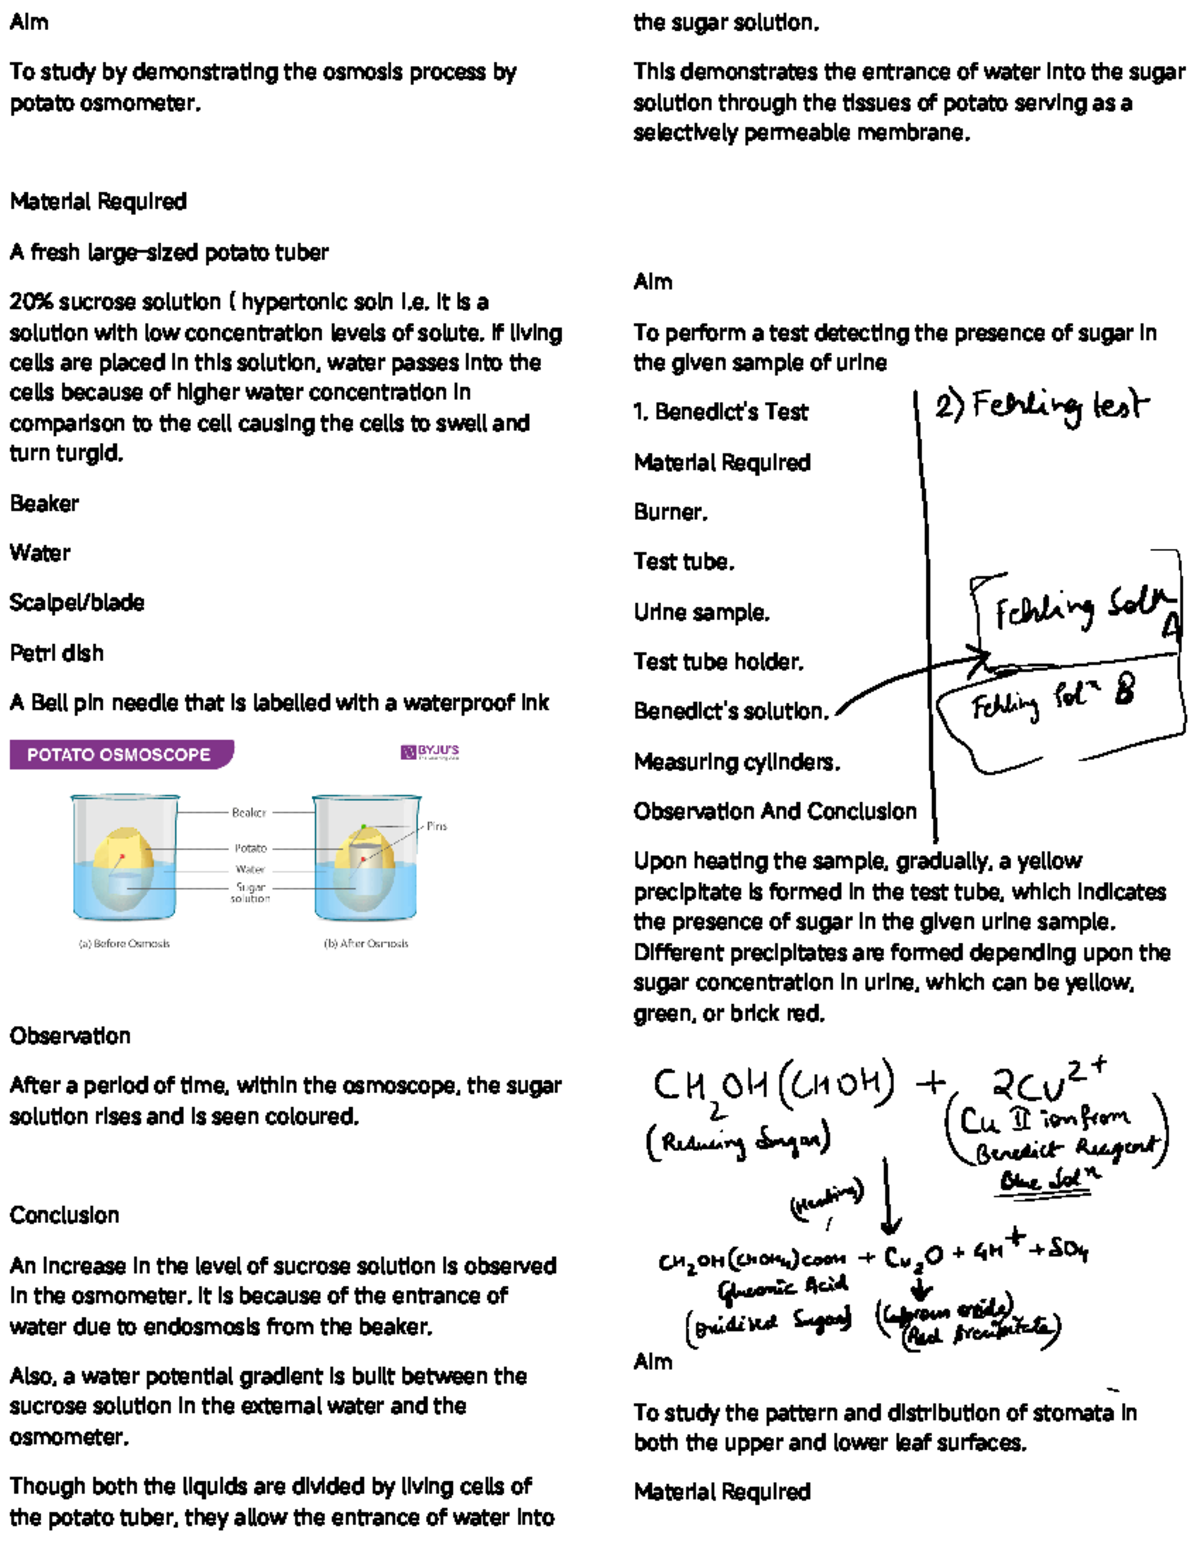 Aim
To study by demonstrating the osmosis process by
potato osmometer.
Material Required
A fresh large-sized potato tuber
20% sucrose solution ( hypertonic soln i.e. it is a
solution with low concentration levels of solute. If living
cells are placed in this solution, water passes into the
cells because of higher water concentration in
comparison to the cell causing the cells to swell and
turn turgid.
Beaker
Water
Scalpel/blade
Petri dish
A Bell pin needle that is labelled with a waterproof ink
POTATO OSMOSCOPE
BYJU'S
Beaker
Pins
Potato
Water
Sugar
solution
(a) Before Osmosis
(b) After Osmosis
Observation
After a period of time, within the osmoscope, the sugar
solution rises and is seen coloured.
Conclusion
An increase in the level of sucrose solution is observed
in the osmometer. It is because of the entrance of
water due to endosmosis from the beaker.
Also, a water potential gradient is built between the
sucrose solution in the external water and the
osmometer.
Though both the liquids are divided by living cells of
the potato tuber, they allow the entrance of water into
the sugar solution.
This demonstrates the entrance of water into the sugar
solution through the tissues of potato serving as a
selectively permeable membrane.
Aim
To perform a test detecting the presence of sugar in
the given sample of urine
1. Benedict's Test
2) Fehling test
Material Required
Burner.
Test tube.
Urine sample.
Fehling Soln
A
Test tube holder.
Benedict's solution.
Fehling Solⁿ B
Measuring cylinders.
Observation And Conclusion
Upon heating the sample, gradually, a yellow
precipitate is formed in the test tube, which indicates
the presence of sugar in the given urine sample.
Different precipitates are formed depending upon the
sugar concentration in urine, which can be yellow,
green, or brick red.
CH₂OH(CHOH) + 2Cu²⁺
(Reducing Sugar)
(Cu II ion from
Benedict Reagent)
Blue Solⁿ
(Heating)
CH₂OH(CHOH₄)COOH + Cu₂O + 4H⁺ + SO₄
Gluconic Acid
(Oxidised Sugar)
(Cuprous oxide)
(Red Precipitate)
Aim
To study the pattern and distribution of stomata in
both the upper and lower leaf surfaces.
Material Required